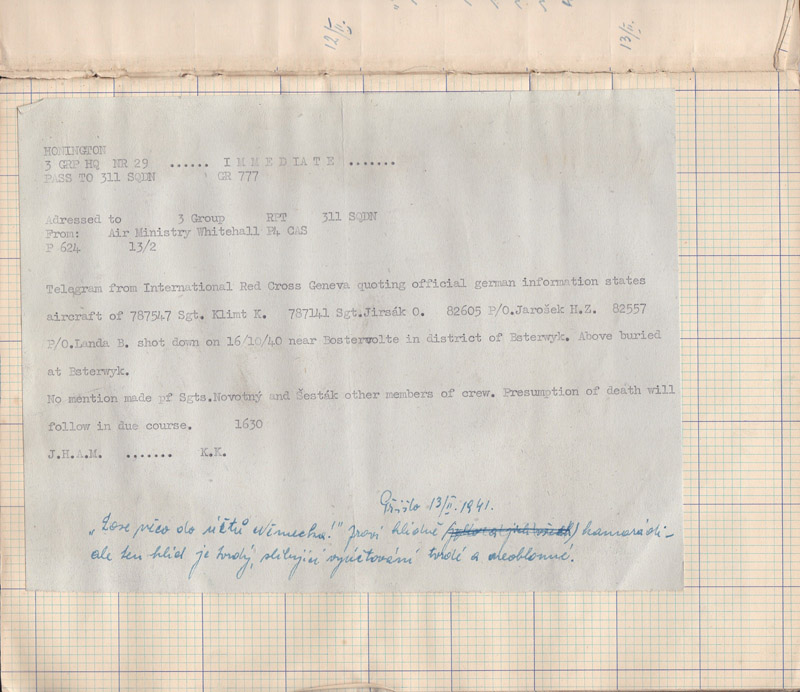 12/II.
13/II.
HONINGTON
3 GRP HQ NR 29 ...... I M M E D I A T E .......
PASS TO 311 SQDN ' GR 777
Adressed to 3 Group RPT 311 SQDN
From: Air Ministry Whitehall P4 CAS
P 624 13/2
Telegram from International Red Cross Geneva quoting official german information states
aircraft of 787547 Sgt. Klimt K. 787141 Sgt.Jirsák O. 82605 P/O.Jarošek H.Z. 82557
P/O.Landa B. shot down on 16/10/40 near Bostervolte in district of Esterwyk. Above buried
at Esterwyk.
No mention made pf Sgts.Novotný and Šesták other members of crew. Presumption of death will
follow in due course. 1630
J.H.A.M. ....... K.K.
Přišlo 13/II. 1941.
„Zase něco do účtů Německa!" praví klidně kamarádi -
ale ten klid je tvrdý, slibující vyúčtování tvrdé a neoblomné.